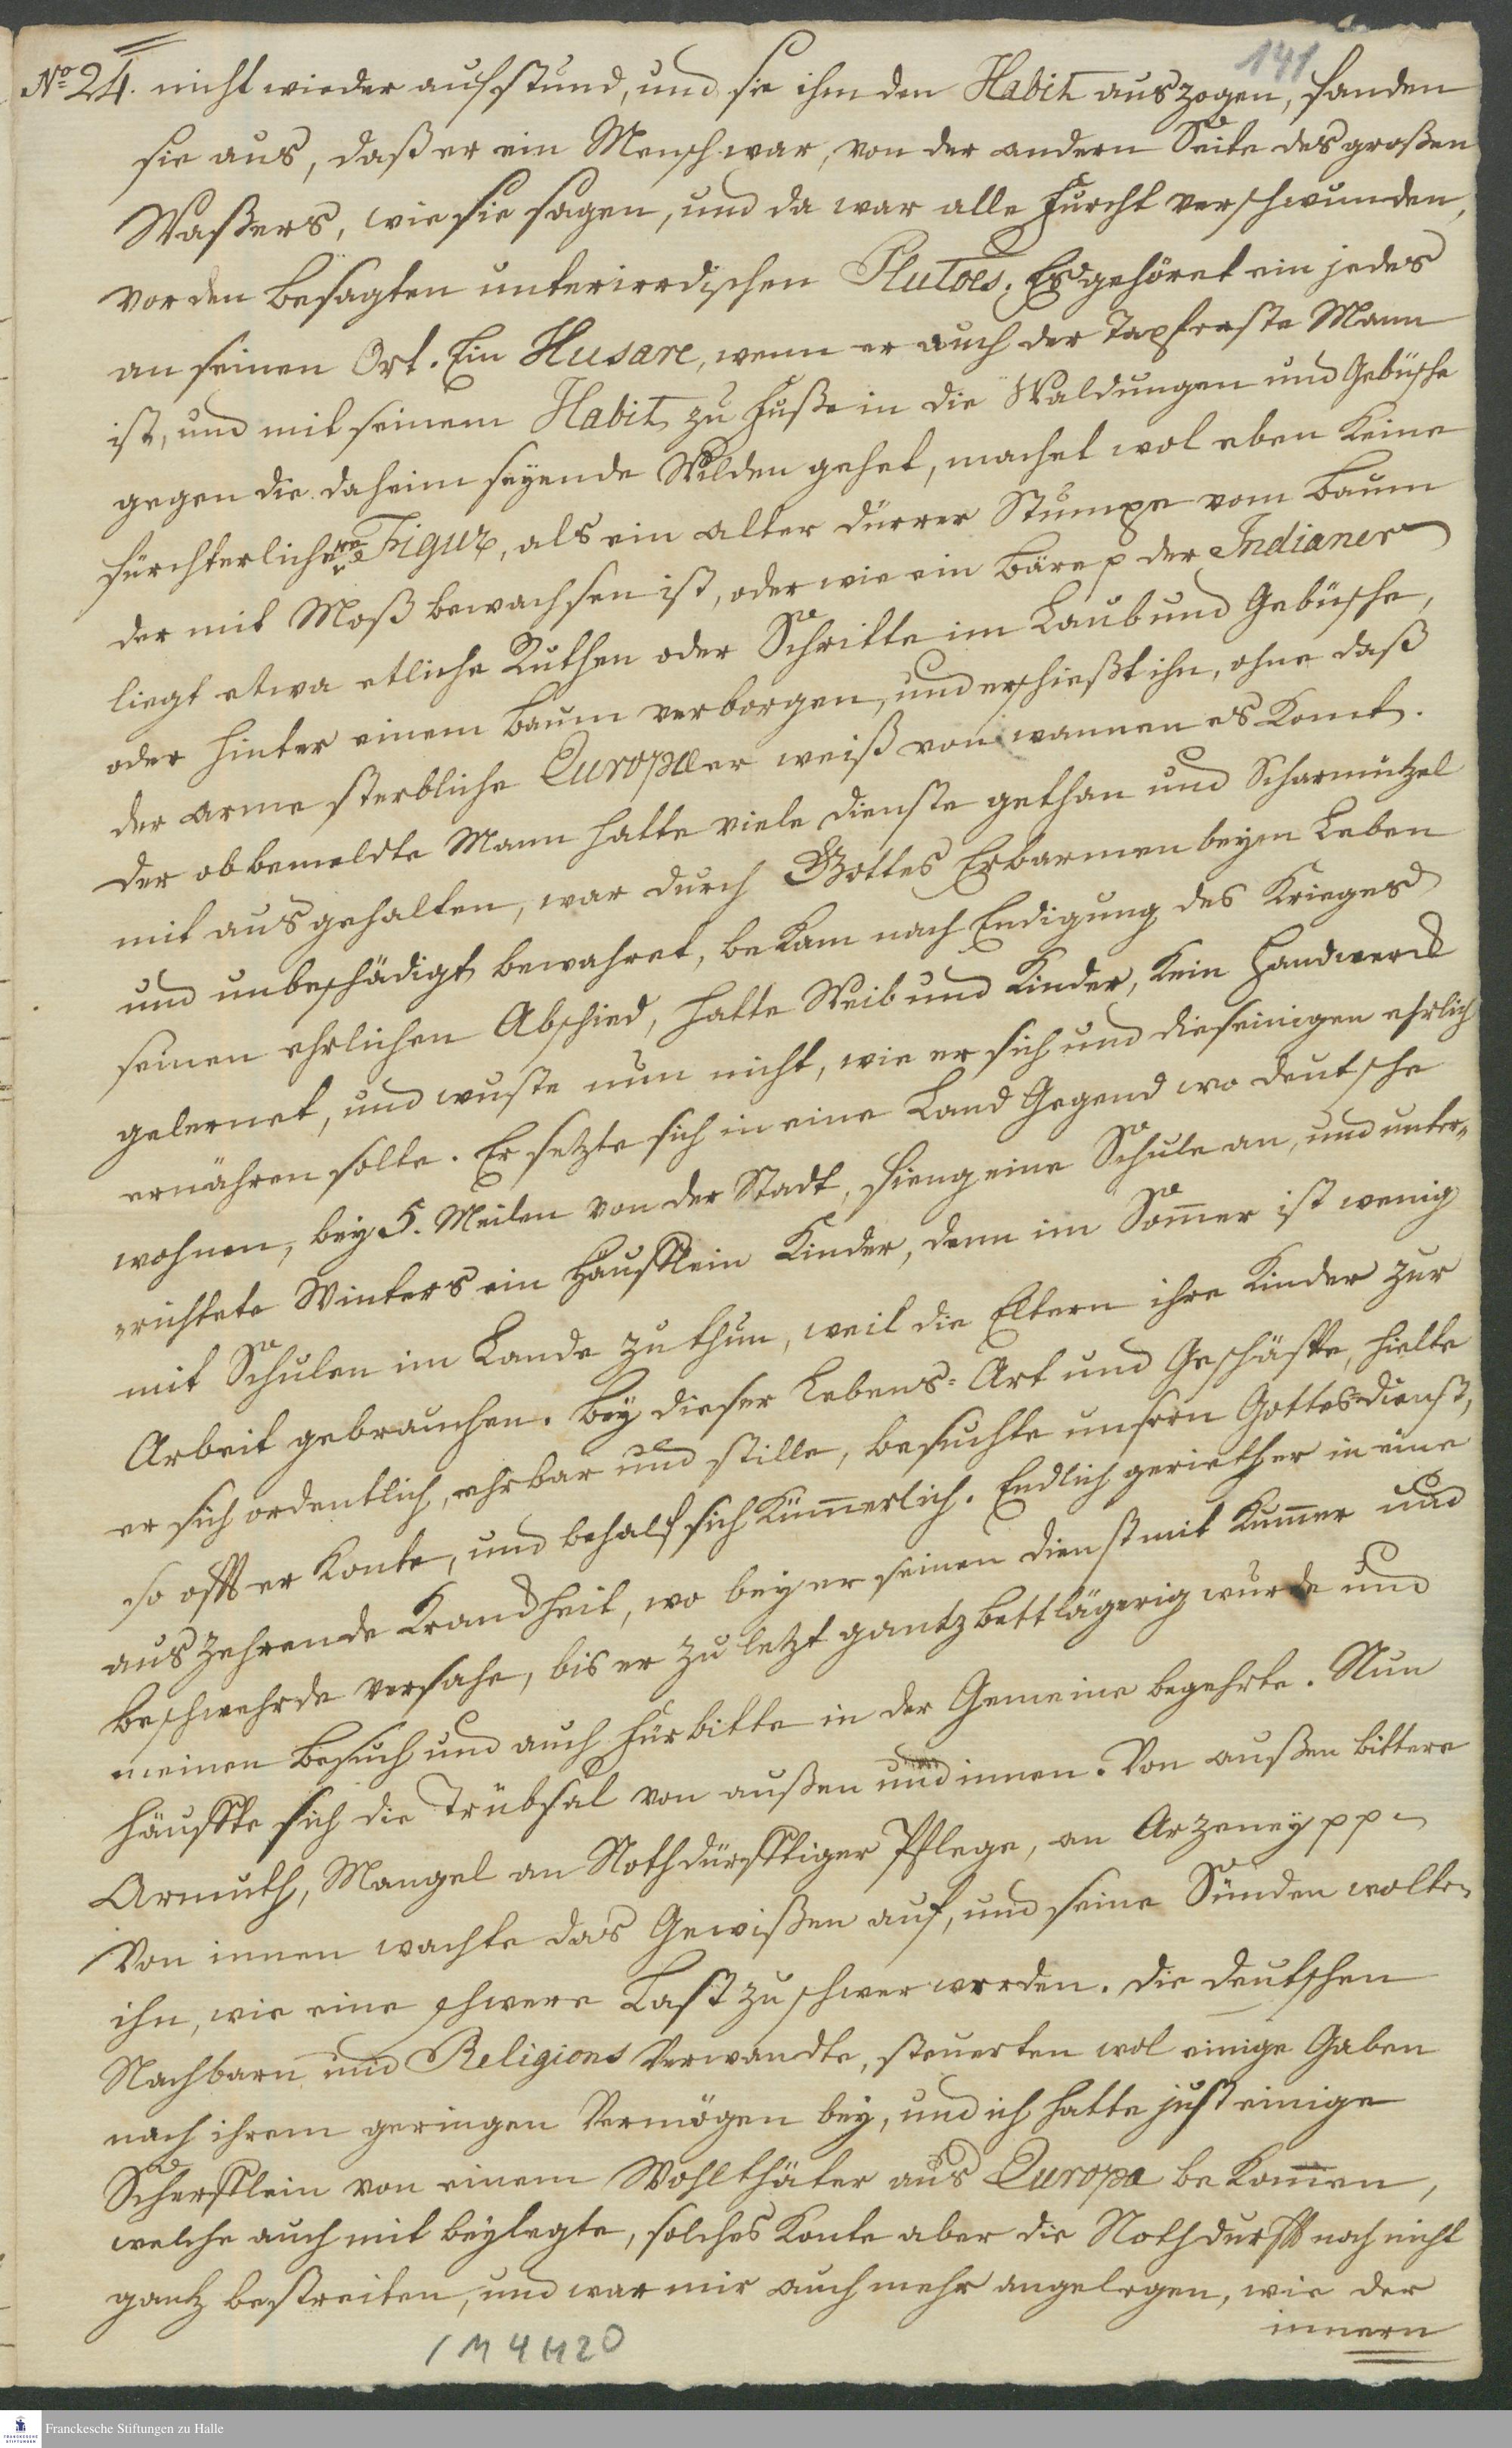 141
No 24. nicht wieder aufstund, und sie ihm den Habit auszogen, fanden
sie aus, daß er ein Mensch war, von der andern Seite des großen
Waßers, wie sie sagen, und da war alle Furcht verschwunden,
vor den besagten unterirrdischen Plutoes. Es gehöret ein jedes
an seinen Ort. Ein Husare, wenn er auch der Tapferste Mann
ist, und mit seinem Habit zu Fuße in die Waldungen und Gebüsche
gegen die daheim seyende Wilden gehet, machet wol eben keine
fürchterlichere Figur, als ein alter dürrer Stumpe vom Baum
der mit Moß bewachsen ist, oder wie ein Bäre p der Indianer
liegt etwa etliche Ruthen oder Schritte im Laub und Gebüsche,
oder hinter einem Baum verborgen, und erschießt ihn, ohne daß
der arme sterbliche Europæer weiß von wannen es komt.
Der obbemeldte Mann hatte viele Dienste gethan und Scharmützel
mit ausgehalten, war durch Gottes Erbarmen beym Leben
und unbeschädigt bewahret, bekam nach Endigung des Krieges
seinen ehrlichen Abschied, hatte Weib und Kinder, kein Handwerck
gelernet, und wuste nun nicht, wie er sich und die seinigen ehrlich
ernähren solte. Er setzte sich in eine Land Gegend wo deutsche
wohnen, bey 5. Meilen von der Stadt, fieng eine Schule an, und unter-
richtete Winters ein Häufflein Kinder, denn im Som̄er ist wenig
mit Schulen im Lande zu thun, weil die Eltern ihre Kinder zur
Arbeit gebrauchen. Bey dieser Lebens-Art und Geschäffte, hielte
er sich ordentlich, ehrbar und stille, besuchte unsern Gottes-Dienst,
so offt er konte, und behalf sich küm̄erlich. Endlich gerieth er in eine
auszehrende Kranckheit, wo bey er seinen Dienst mit Kum̄er und
Beschwehrde versahe, bis er zu letzt gantz bettlägerig wurde und
meinen Besuch und auch Fürbitte in der Gemeine begehrte. Nun
häuffte sich die Trübsal von außen und innen. Von außen bittere
Armuth, Mangel an Nothdürfftiger Pflege, an Arzeney pp
Von innen wachte das Gewißen auf, und seine Sünden wolten
ihn, wie eine schwere Last zu schwer werden. Die deutschen
Nachbarn und Religions Verwandte, steuerten wol einige Gaben
nach ihrem geringen Vermögen bey, und ich hatte just einige
Scherfflein von einem Wohlthäter aus Europa bekom̄en,
welche auch mit beylegte, solches konte aber die Nothdurfft noch nicht
gantz bestreiten, und war mir auch mehr angelegen, wie der
innern
1 M 4 H 20
Franckesche Stiftungen zu Halle